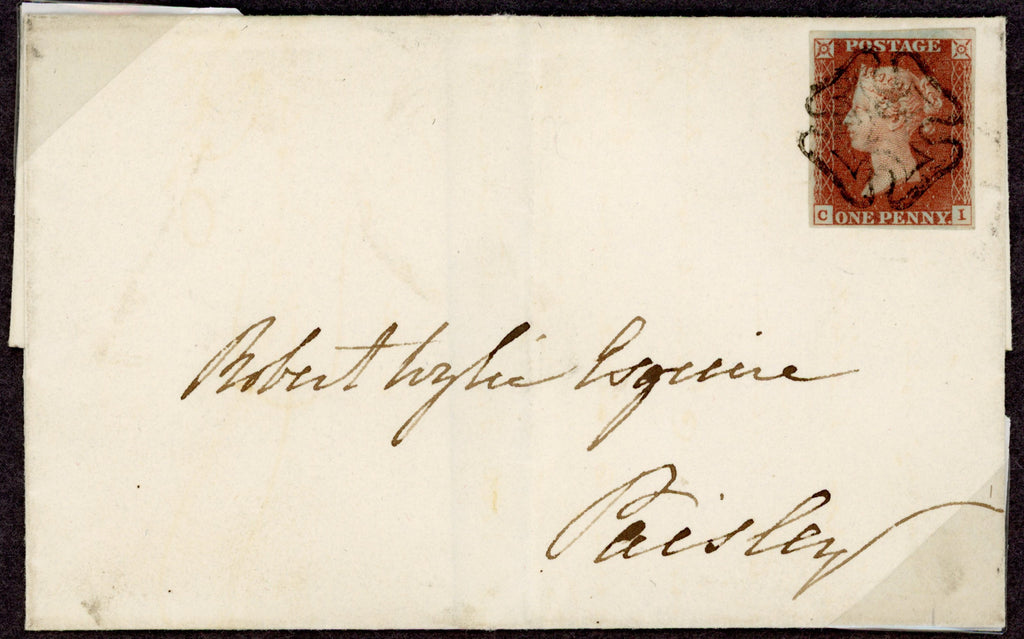 POSTAGE
C ONE PENNY. I
Robert Wylie Esquire
Paisley